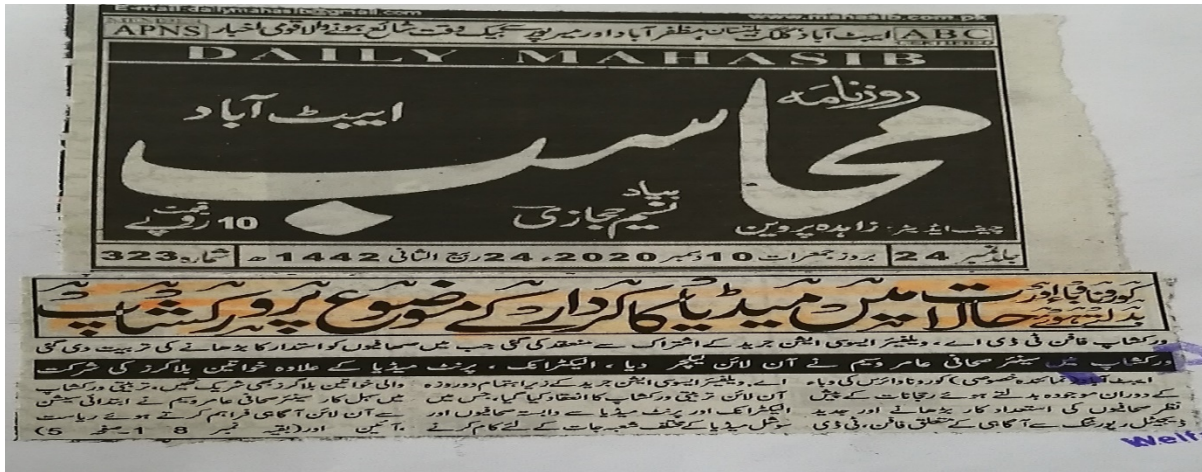 E-mail:dailymahasib@gmail.com www.mahasib.com.pk
APNS ایبٹ آباد گلگت بلتستان مظفر آباد اور میر پور سے بیک وقت شائع ہونے والا قومی اخبار ABC
CERTIFIED
DAILY MAHASIB
روزنامہ
محاسب
ایبٹ آباد
بیاد
نسیم حجازی
چیف ایڈیٹر: زاہدہ پروین
قیمت 10 روپے
جلد نمبر 24 بروز جمعرات 10 دسمبر 2020ء 24 ربیع الثانی 1442ھ شمارہ 323
کورونا وباء اور بدلتے ہوئے حالات میں میڈیا کا کردار کے موضوع پر ورکشاپ
ورکشاپ فافن ٹی ڈی اے، ویلفیئر ایسوسی ایشن جرید کے اشتراک سے منعقد کی گئی جب میں صحافیوں کو استعداد کار بڑھانے کی تربیت دی گئی
ورکشاپ میں سینئر صحافی عامر وسیم نے آن لائن لیکچر دیا ، الیکٹرانک ، پرنٹ میڈیا کے علاوہ خواتین بلاگرز کی شرکت
ایبٹ آباد (نمائندہ خصوصی) کورونا وائرس کی وباء
کے دوران موجودہ بدلتے ہوئے رجحانات کے پیش
نظر صحافیوں کی استعداد کار بڑھانے اور جدید
ڈیجیٹل رپورٹنگ سے آگاہی کے متعلق فافن، ٹی ڈی
اے، ویلفیئر ایسوسی ایشن جرید کے زیر اہتمام دو روزہ
آن لائن تربیتی ورکشاپ کا انعقاد کیا گیا، جس میں
الیکٹرانک اور پرنٹ میڈیا سے وابستہ صحافیوں اور
سوشل میڈیا کے مختلف شعبہ جات کے لئے کام کرنے
والی خواتین بلاگرز بھی شریک تھیں، تربیتی ورکشاپ
میں سہل کار سینئر صحافی عامر وسیم نے ابتدائی سیشن
سے آن لائن آگاہی فراہم کرتے ہوئے ریاست
،آئین اور (بقیہ نمبر 18 صفحہ 5)
Welf